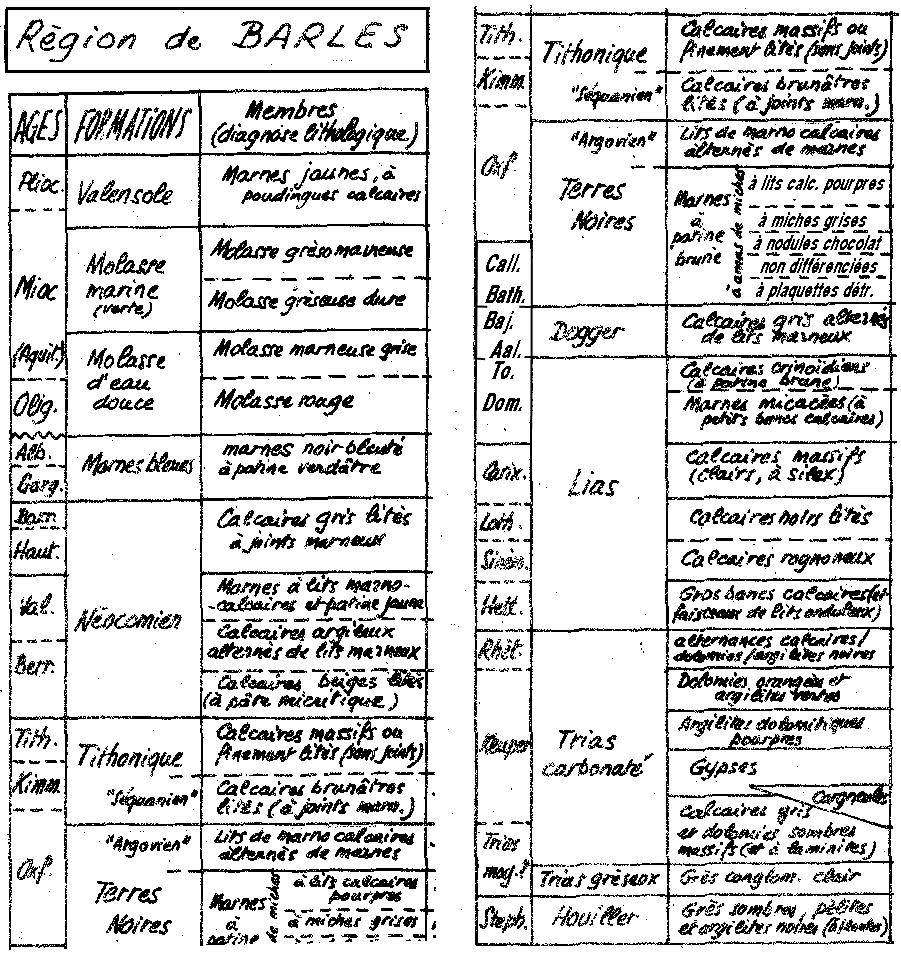 Région de BARLES
AGES FORMATIONS Membres
(diagnose lithologique)
Plioc. Valensole Marnes jaunes, à
poudingues calcaires
Mioc Molasse
marine
(verte)
Molasse gréso marneuse
Molasse gréseuse dure
(Aquit.) Molasse
d'eau
douce
Molasse marneuse grise
Olig. Molasse rouge
Alb. Marnes bleues marnes noir bleuté
à patine verdâtre
Garg.
Barr. Calcaires gris lités
à joints marneux
Haut.
Néocomien
Val. Marnes à lits marno-
-calcaires et patine jaune
Calcaires argileux
alternés de lits marneux
Berr. Calcaires beiges lités
(à pâte micritique)
Tith. Tithonique Calcaires massifs ou
finement lités (sans joints)
Kimm. "Séquanien" Calcaires brunâtres
lités (à joints marn.)
Oxf. "Argovien" Lits de marno calcaires
alternés de marnes
Terres
Noires
Marnes
à
patine
de miches
à lits calcaires
pourpres
à miches grises
Tith. Tithonique Calcaires massifs ou
finement lités (sans joints)
Kimm. "Séquanien" Calcaires brunâtres
lités (à joints marn.)
Oxf "Argovien" Lits de marno calcaires
alternés de marnes
Terres
Noires
Marnes
à
patine
brune
à amas de miches
à lits calc. pourpres
à miches grises
à nodules chocolat
Call. non différenciées
Bath. à plaquettes détr.
Baj. Dogger Calcaires gris alternés
de lits marneux
Aal.
To. Calcaires crinoïdiens
(à patine brune)
Dom. Marnes micacées (à
petits bancs calcaires)
Lias
Carix. Calcaires massifs
(clairs, à silex)
Loth. Calcaires noirs lités
Siném. Calcaires rognoneux
Hett. Gros bancs calcaires (et
faisceaux de lits onduleux)
Rhét. alternances calcaires/
dolomies/argilites noires
Keuper Trias
carbonaté
Dolomies orangées et
argilites vertes
Argilites dolomitiques
pourpres
Gypses
Cargneules
Trias
moy.
Calcaires gris
et dolomies sombres
massifs (et à laminites)
Trias gréseux Grès conglom. clair
Steph. Houiller Grès sombres, pélites
et argilites noires